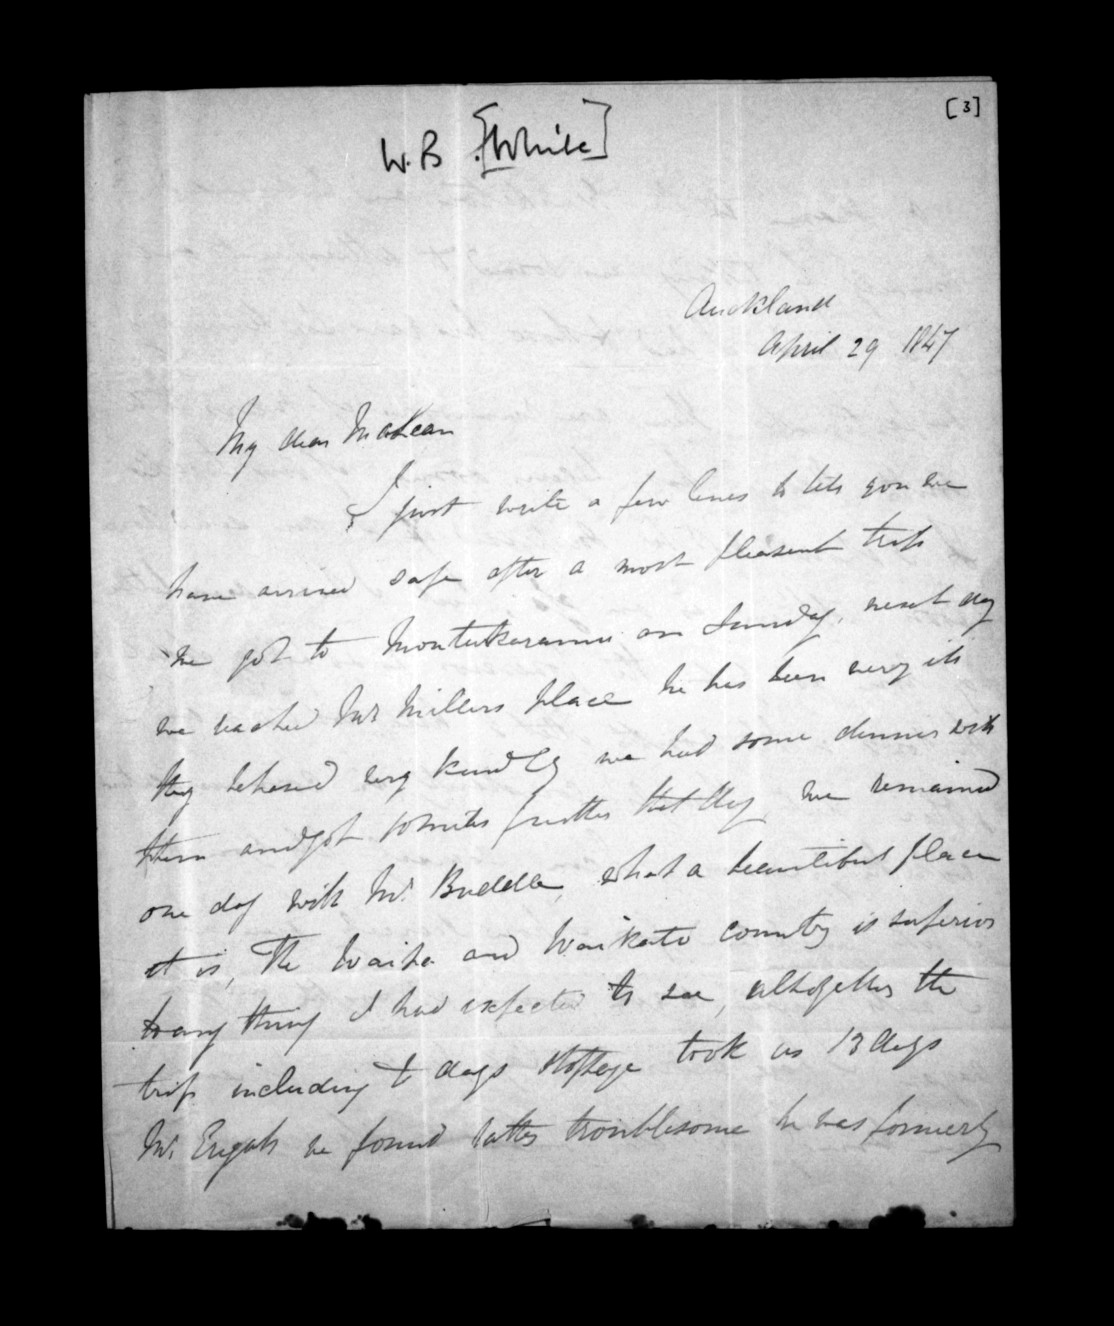 [3]
W. B. [White]
Auckland
April 29 1847
My dear McLean
I just write a few lines to let you we
have arrived safe after a most pleasent trip
we got to on Sunday, next day
we reached Mr Millers place he has been very ill
they behaved very kindly we had some dinner with
them and got 10 miles further that day we remained
one day with Mr. Buddle, what a beautiful place
it is, The Waipa and Waikato country is superior
to any thing I had expected to see, altogether the
trip including days stoppage took us 13 days
Mr. we found rather troublesome he was formerly